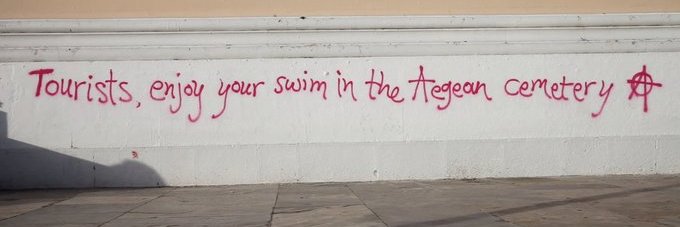 Tourists, enjoy your swim in the Aegean cemetery